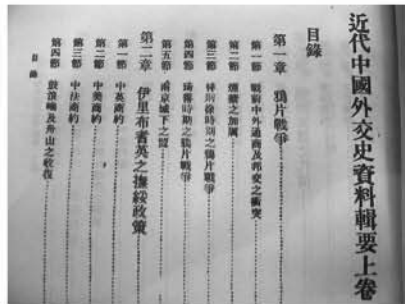 近代中國外交史資料輯要上卷
目錄
第一章 鴉片戰爭
第一節 戰前中外通商及邦交之衝突
第二節 煙禁之加厲
第三節 林則徐時期之鴉片戰爭
第四節 琦善時期之鴉片戰爭
第五節 南京城下之盟
第二章 伊里布耆英之撫綏政策
第一節 中英商約
第二節 中美商約
第三節 中法商約
第四節 鼓浪嶼及舟山之收復
目錄